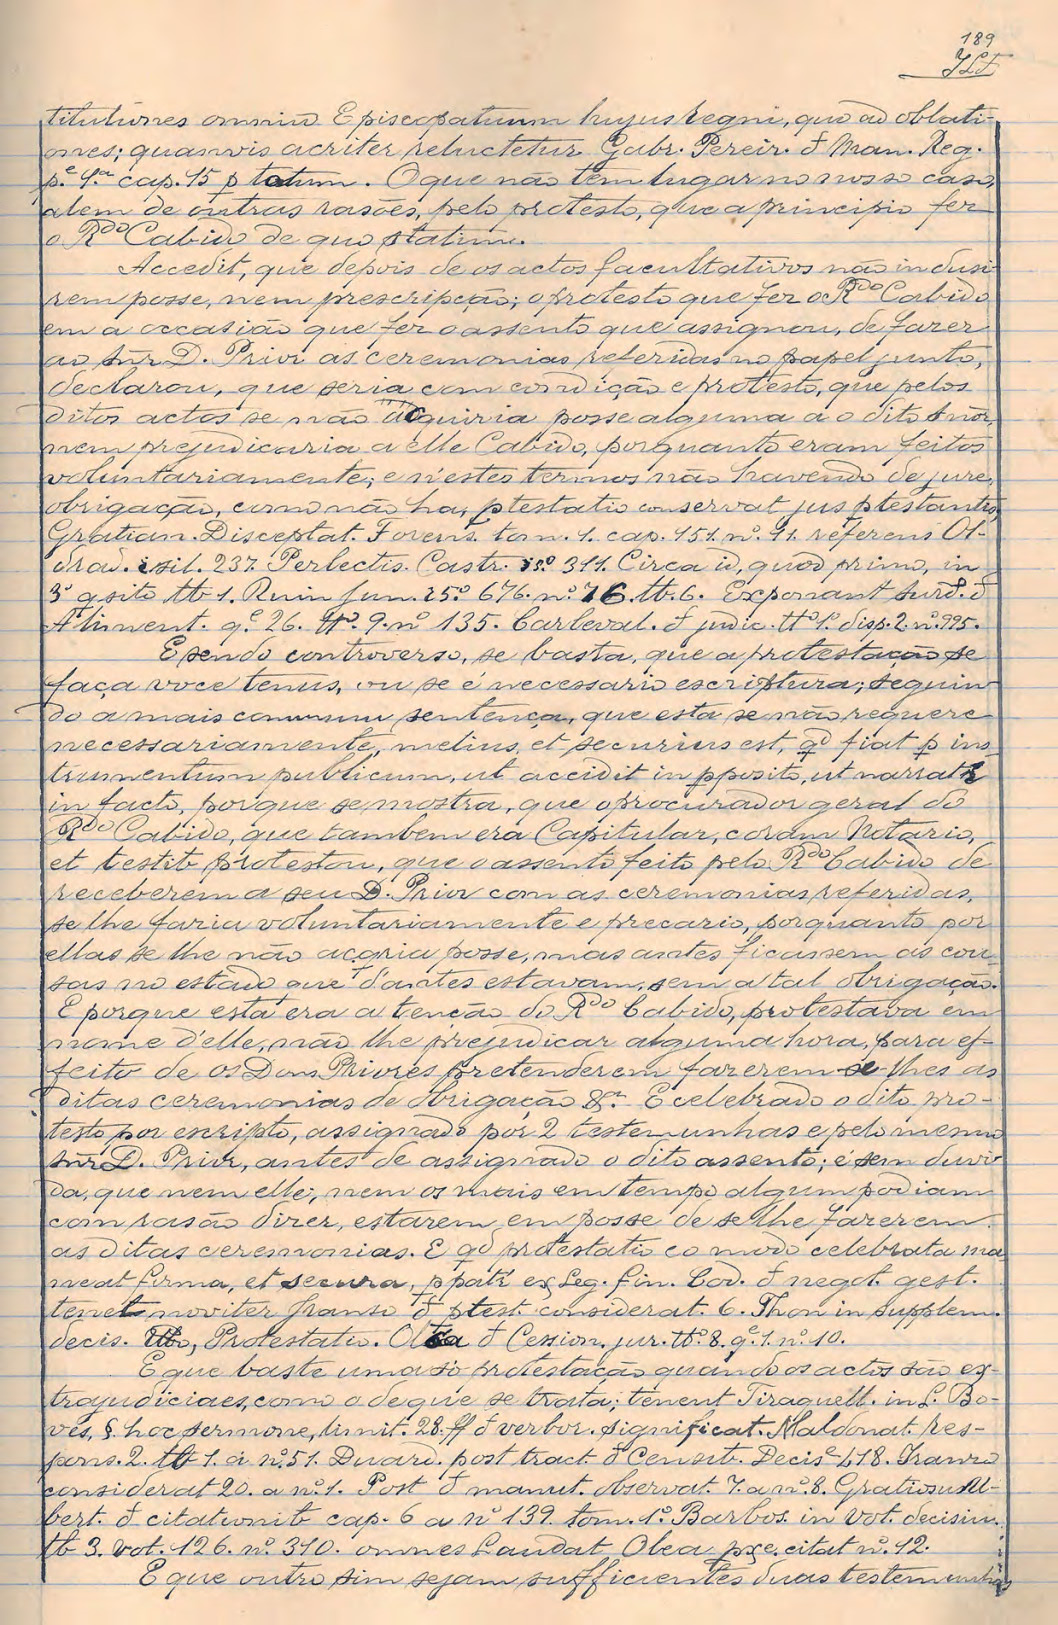 189
titutiones omniũ Episcopatuum hujus regni, quo ad oblati-
ones; quamvis acriter reluctetur Gabr. Pereir. đ Man. Reg.
p.e 1.a cap. 15 p totum. O que não tem lugar no nosso caso,
alem de outras rasões, pelo protesto, que a principio fez
o R.do Cabido de quo statim.
Accedit, que depois de os actos facultativos não indusi-
rem posse, nem prescripção; o protesto que fez o R.do Cabido
em a occasião que fez o assento que assignou, de fazer
ao Snr D. Prior as ceremonias referidas no papel junto,
declarou, que seria com condição e protesto, que pelos
ditos actos se não acquiria posse alguma a o dito Snor,
nem prejudicaria a elle Cabido, porquanto eram feitos
voluntariamente; e n'estes termos não havendo de jure,
obrigação, como não ha, ptestatio conservat jus ptestantis,
Gratian. Disceptat. Forens. tom. 1. cap. 151. nº. 11. referens Ol-
drad. 237. Perlectis. Castr. 311. Circa id, quod primo, in
3º qsito 1. Ruin 676. nº. 16. 6. Exponant Surd. đ
Aliment. 26. 9. nº 135. Carleval. đ judic. ttº 1º. disp. 2. nº. 995.
E sendo controverso, se basta, que a protestação se
faça voce tenus, ou se é necessario escriptura; seguin-
do a mais commum sentença, que esta se não requere
necessariamente, melius, et securius est, qđ fiat p ins-
trumentum publicum, ut accidit in pposito, ut narratr
in facto, porque se mostra, que o procurador geral do
R.do Cabido, que tambem era Capitular, coram Notario,
et testib protestou, que o assento feito pelo R.do Cabido de
receberem a seu D. Prior com as ceremonias referidas,
se lhe faria voluntariamente e precario, porquanto por
ellas se lhe não acqria posse, mas antes ficassem as cou-
sas no estado que d'antes estavam, sem a tal obrigação.
E porque esta era a tenção do R.do Cabido, protestava em
nome d'elle, não lhe prejudicar alguma hora, para ef-
feito de os Dons Priores pretenderem fazerem-se-lhes as
ditas ceremonias de obrigação &.a E celebrado o dito pro-
testo por escripto, assignado por 2 testemunhas e pelo mesmo
Snr D. Prior, antes de assignado o dito assento; é sem duvi-
da, que nem elle, nem os mais em tempo algum podiam
com rasão dizer, estarem em posse de se lhe fazerem
as ditas ceremonias. E qđ protestatio eo modo celebrata ma-
neat firma, et secura, p ex Leg. fin. Cod. đ negot. gest.
tenet noviter Franso đ ptest. considerat. 6. Thon in supplem.
decis. Protestatio. Olea đ Cession. jur. ttº. 8. q.e. 1. nº. 10.
E que baste uma só protestação quando os actos são ex-
trajudiciaes, como o de que se trata; tenent Tiraquell. in L. Bo-
ves, §. hoc sermone, limit. 28. ff đ verbor. significat. Maldonat. res-
pons. 2. 1. a nº. 51. Duard. post tract. đ Censib. Decis.e 418.
considerat 20. a nº. 1. Post đ manut. observat. 7. a nº. 8. Gratiosus Al-
bert. đ citationib cap. 6 a nº 139. tom. 1º. Barbos. in Vot. decisiv.
3. vot. 126. nº. 310. omnes Laudat Olea citat nº. 12.
E que outro sim sejam sufficientes duas testemunhas